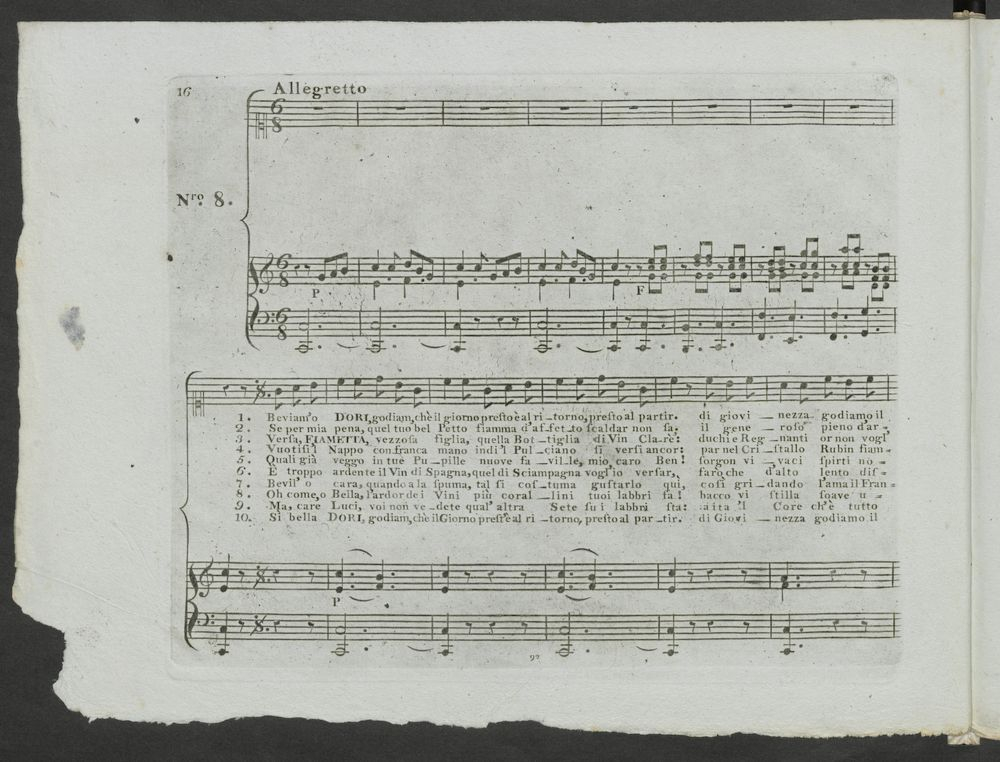 16
Allegretto
Nro. 8.
P F
1. Beviam'o DORI, godiam, chè il giorno presto è al ri_torno, presto al partir. di giovi _ nezza godiamo il
2. Se per mia pena, quel tuo bel Petto fiamma d'affet_to scaldar non sa; il gene _ roso pieno d'ar_
3. Versa, FIAMETTA, vezzosa figlia, quella Bot_tiglia di Vin Cla_rè: duchi e Reg _ nanti or non vogl'
4. Vuotisi'l Nappo con franca mano indi'l Pul_ciano si versi ancor: par nel Cri _ stallo Rubin fiam=
5. Quali già veggo in tue Pu_pille nuove fa_vil_le, mio caro Ben! sorgon vi _ vaci spirti no=
6. È troppo ardente il Vin di Spagna, quel di Sciampagna vogl'io versar, farò che d'alto lento dif=
7. Bevil' o cara, quando a la spuma, tal si cos_tuma gustarlo qui, così gri _ dando l'ama il Fran=
8. Oh come, o Bella, l'ardor dei Vini più coral _ lini tuoi labbri fa! bacco vi stilla soave u=
9. Ma, care Luci, voi non ve_dete qual'altra Sete sui labbri sta: aita 'l Core ch'è tutto
10. Sì bella DORI, godiam, chè il Giorno prest'è al ri_torno, presto al par_tir. di Giovi _ nezza godiamo il
P
92